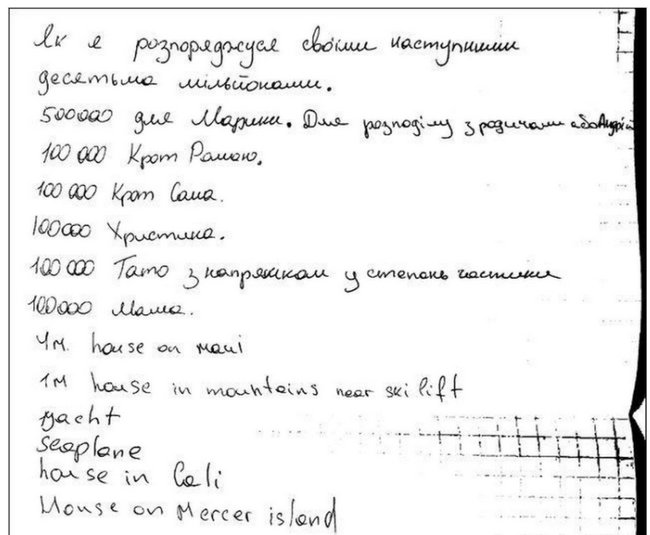 Як я розпоряджуся своїми наступними
десятьма мільйонами.
500000 для Марини. Для розподілу з родичами або Андрій
100 000 Крот Рамаю.
100 000 Крот Саша.
100000 Христина.
100 000 Тато з напрямком у степень частики
100000 Мама.
4м. house on maui
1м house in mountains near ski lift
yacht
seaplane
house in Cali
House on Mercer island